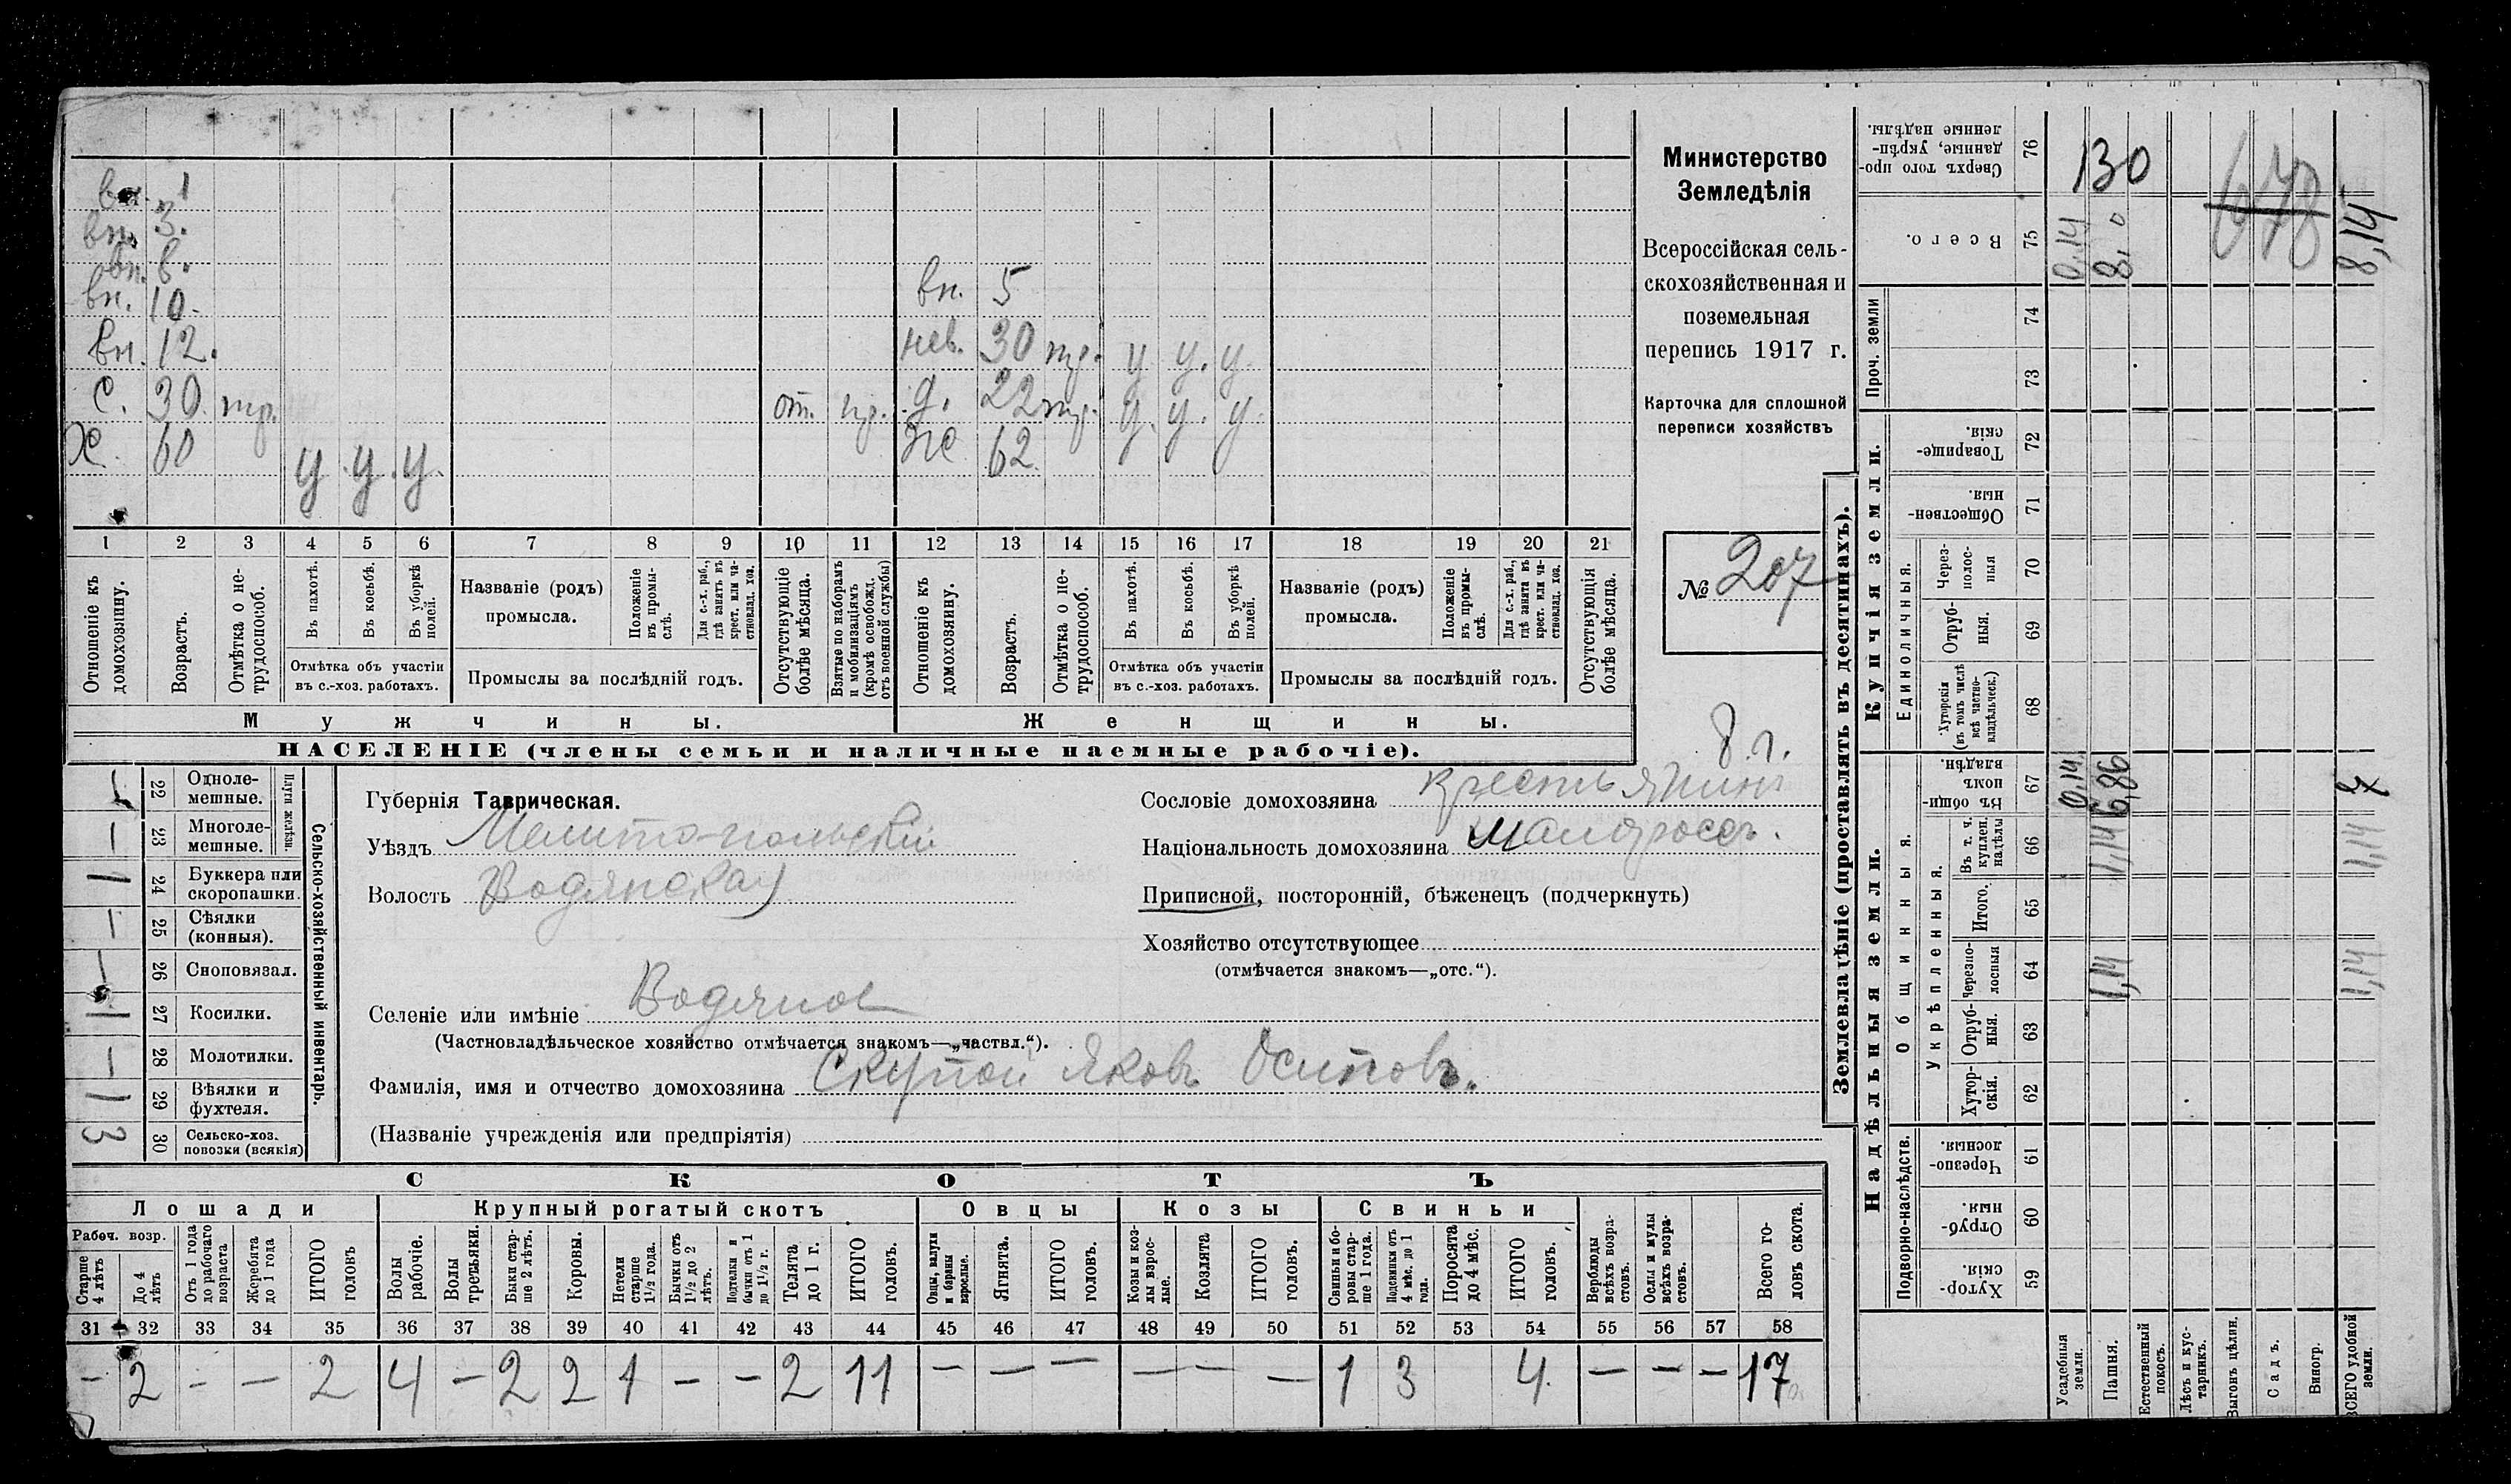 вн. 1
вн. 3.
вн. 6.
вн. 10.
вн. 5
вн. 12.
нев. 30 тр. у у. у.
С. 30. тр. от. д. 22 у. у. у.
Х. 60 у. у. у. же 62.
1 2 3 4 5 6 7 8 9 10 11 12 13 14 15 16 17 18 19 20 21
Отношеніе къ домохозяину.
Возрастъ.
Отмѣтка о не-трудоспособ.
Въ пахотѣ.
Въ косьбѣ.
Въ уборкѣ полей.
Отмѣтка объ участіи въ с.-хоз. работахъ.
Названіе (родъ) промысла.
Положеніе въ промы-слѣ.
Для с.-х. раб., гдѣ занятъ въ крест. или ча-стновлад. хоз.
Промыслы за послѣдній годъ.
Отсутствующіе болѣе мѣсяца.
Взятые по наборамъ и мобилизаціямъ (кромѣ освобожд. отъ военной службы)
Отношеніе къ домохозяину.
Возрастъ.
Отмѣтка о не-трудоспособ.
Въ пахотѣ.
Въ косьбѣ.
Въ уборкѣ полей.
Отмѣтка объ участіи въ с.-хоз. работахъ.
Названіе (родъ) промысла.
Положеніе въ промы-слѣ.
Для с.-х. раб., гдѣ занята въ крест. или ча-стновлад. хоз.
Промыслы за послѣдній годъ.
Отсутствующія болѣе мѣсяца.
Мужчины.
Женщины.
НАСЕЛЕНІЕ (члены семьи и наличные наемные рабочіе).
Министерство
Земледѣлія
Всероссійская сель-
скохозяйственная и
поземельная
перепись 1917 г.
Карточка для сплошной
переписи хозяйствъ
№ 207
8 г.
Сельско-хозяйственный инвентарь.
Плуги желѣзн.
22 Одноле-мешные.
— 23 Многоле-мешные.
1 24 Буккера или скоропашки.
— 25 Сѣялки (конныя).
— 26 Сноповязал.
1 27 Косилки.
— 28 Молотилки.
1 29 Вѣялки и фухтеля.
3 30 Сельско-хоз. повозки (всякія)
Губернія Таврическая.
Уѣздъ Мелитопольскій
Волость Водянская
Селеніе или имѣніе Водяное
(Частновладѣльческое хозяйство отмѣчается знакомъ—„частвл.“).
Фамилія, имя и отчество домохозяина Скупой Яковъ Осиповъ.
(Названіе учрежденія или предпріятія)
Сословіе домохозяина крестьянинъ
Національность домохозяина малоросъ.
Приписной, посторонній, бѣженецъ (подчеркнуть)
Хозяйство отсутствующее
(отмѣчается знакомъ—„отс.“).
СКОТЪ
Лошади Крупный рогатый скотъ Овцы Козы Свиньи
Рабоч. возр.
Старше 4 лѣтъ
До 4 лѣтъ
Отъ 1 года до рабочаго возраста
Жеребята до 1 года
ИТОГО головъ
Волы рабочіе.
Волы третьяки.
Быки стар-ше 2 лѣтъ.
Коровы.
Нетели старше 1½ года.
Бычки отъ 1½ до 2 лѣтъ.
Подтелки и бычки отъ 1 до 1½ г.
Телята до 1 г.
ИТОГО головъ.
Овцы, валухи и бараны взрослые.
Ягнята.
ИТОГО головъ.
Козы и коз-лы взрос-лые.
Козлята
ИТОГО головъ.
Свиньи и бо-ровы стар-ше 1 года.
Подсвинки отъ 4 мѣс. до 1 года.
Поросята до 4 мѣс.
ИТОГО головъ.
Верблюды всѣхъ возра-стовъ.
Ослы и мулы всѣхъ возра-стовъ.
Всего го-ловъ скота.
31 32 33 34 35 36 37 38 39 40 41 42 43 44 45 46 47 48 49 50 51 52 53 54 55 56 57 58
— 2 — — 2 4 — 2 2 1 — — 2 11 — — — — — — 1 3 4. — — — 17
Землевладѣніе (проставлять въ десятинахъ).
Сверхъ того про-данные, укрѣп-ленные надѣлы. 76 130
Всего. 75 0,14 8,0 678 8,14
Проч. земли 74 73
Купчія земли.
Товарище-скія. 72
Обществен-ныя. 71
Единоличныя.
Через-полос-ная 70
Отруб-ныя. 69
Хуторскія (въ томъ числѣ всѣ частно-владѣльческ.) 68
Надѣльныя земли.
Общинныя.
Въ общи-номъ владѣн. 67 0,14 6,86 7
Укрѣпленныя.
Въ т. ч. куплен. надѣлы 66 1,14 1,14
Итого. 65
Черезпо-лосныя 64 1,14 1,14
Отруб-ныя. 63
Хутор-скія. 62
Подворно-наслѣдств.
Черезпо-лосныя 61
Отруб-ныя. 60
Хутор-скія. 59
Усадебныя земли.
Пашня.
Естественный покосъ.
Лѣсъ и кус-тарникъ.
Выгонъ цѣлин.
Садъ.
Виногр.
ВСЕГО удобной земли.